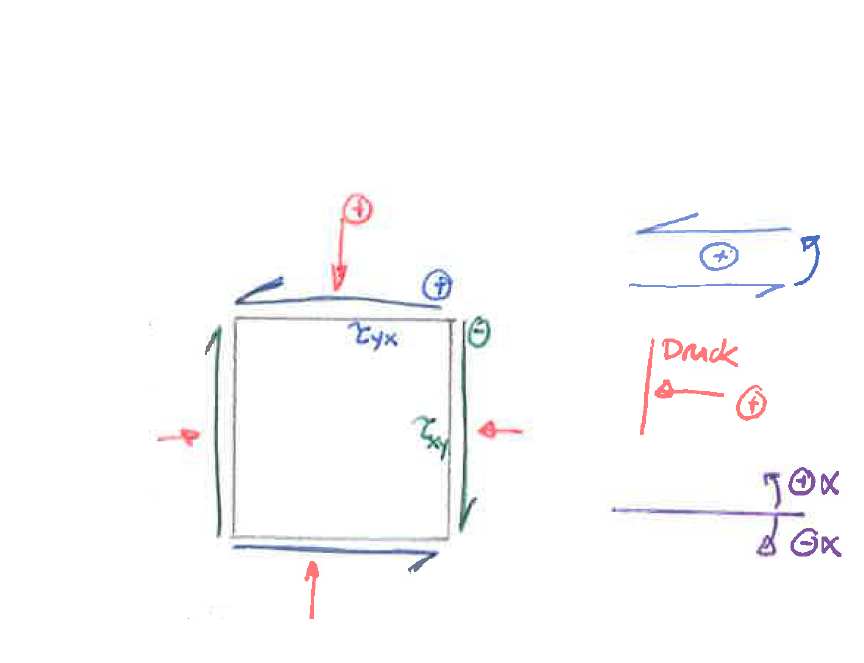 ⊕
⊕
τyx
⊖
τxy
⊕
Druck
⊕
⊕α
⊖α